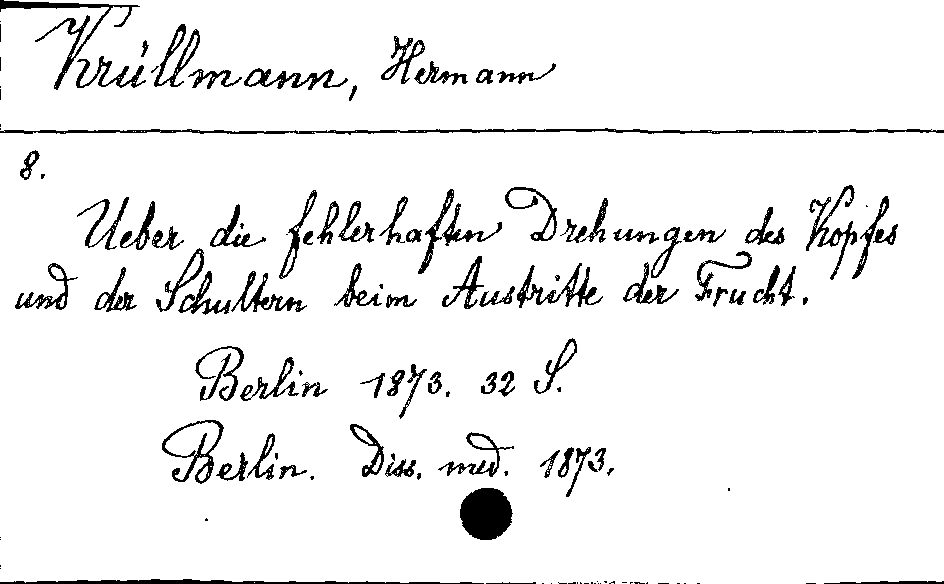 Krüllmann, Hermann
8.
Ueber die fehlerhaften Drehungen des Kopfes
und der Schultern beim Austritte der Frucht.
Berlin 1873. 32 S.
Berlin. Diss. med. 1873.